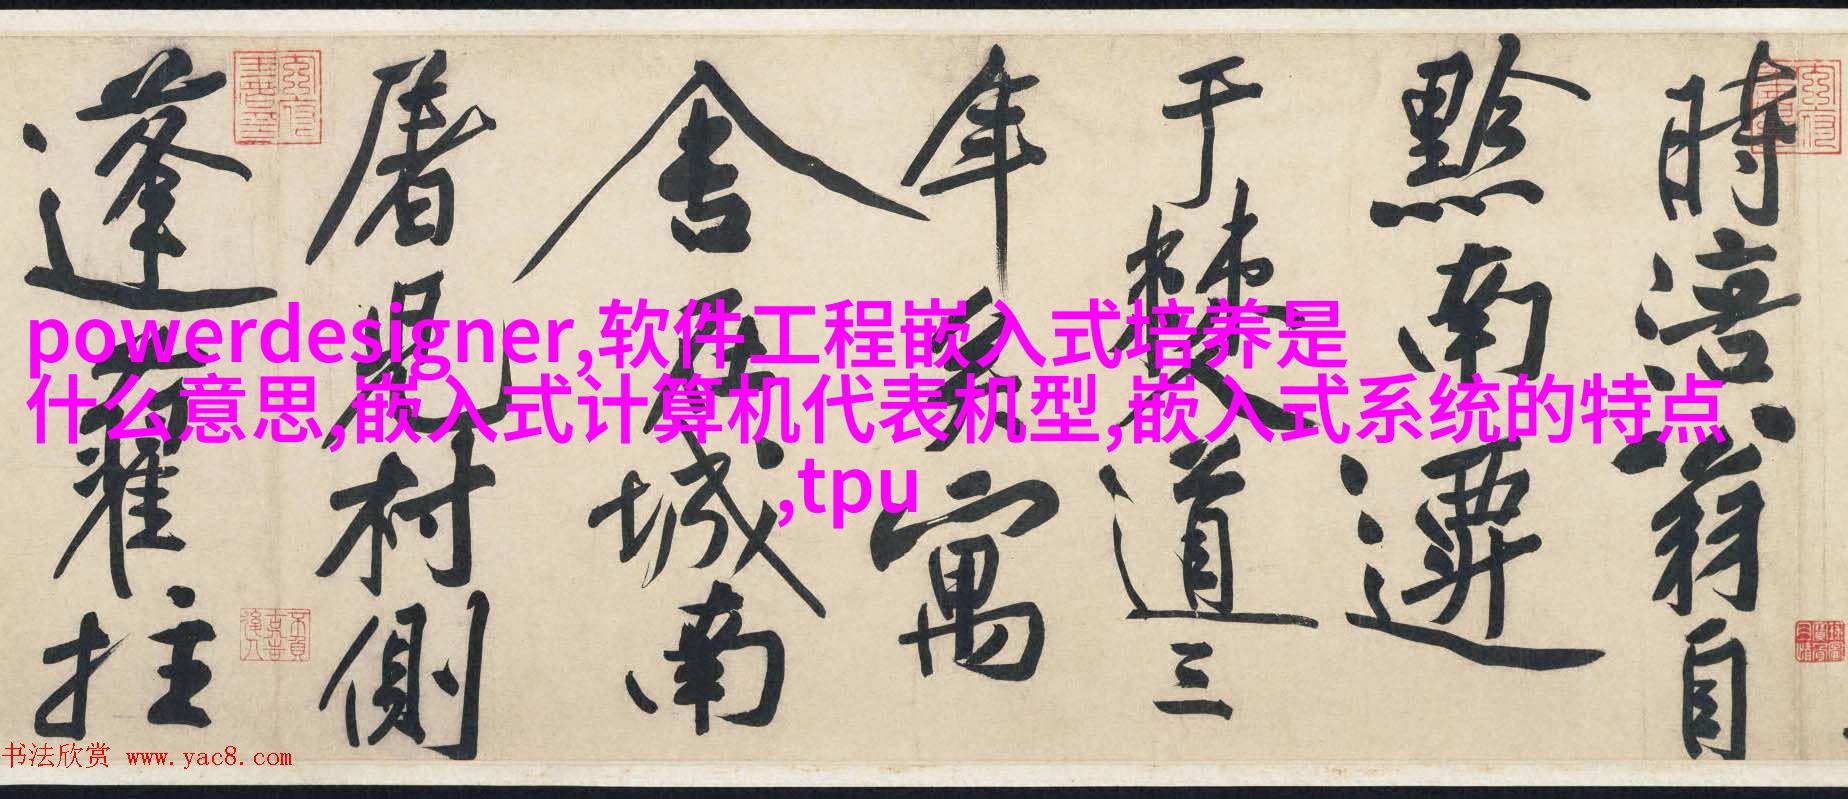 時涪翁自
黔南遷
于僰道三
年矣寓
舍居城南
屠兒村側
蓬藋拄
powerdesigner,软件工程嵌入式培养是
什么意思,嵌入式计算机代表机型,嵌入式系统的特点
,tpu
书法欣赏 www.yac8.com